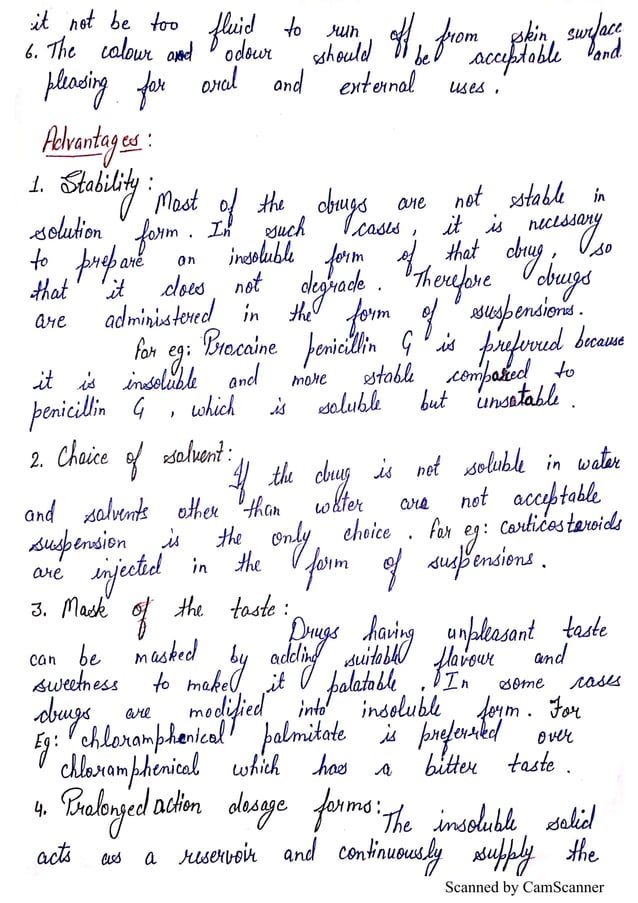 it not be too fluid to run off from skin surface
6. The colour and odour should be acceptable and
pleasing for oral and external uses.
Advantages:
1. Stability:
Most of the drugs are not stable in
solution form. In such cases, it is necessary
to prepare an insoluble form of that drug, so
that it does not degrade. Therefore drugs
are administered in the form of suspensions.
For eg: Procaine penicillin G is preferred because
it is insoluble and more stable compared to
penicillin G, which is soluble but unsatable.
2. Choice of solvent:
If the drug is not soluble in water
and solvents other than water are not acceptable
suspension is the only choice. For eg: Corticosteroids
are injected in the form of suspensions.
3. Mask of the taste:
Drugs having unpleasant taste
can be masked by adding suitable flavour and
sweetness to make it palatable. In some cases
drugs are modified into insoluble form. For
Eg: chloramphenicol palmitate is preferred over
chloramphenical which has a bitter taste.
4. Prolonged action dosage forms:
The insoluble solid
acts as a reservoir and continuously supply the
Scanned by CamScanner